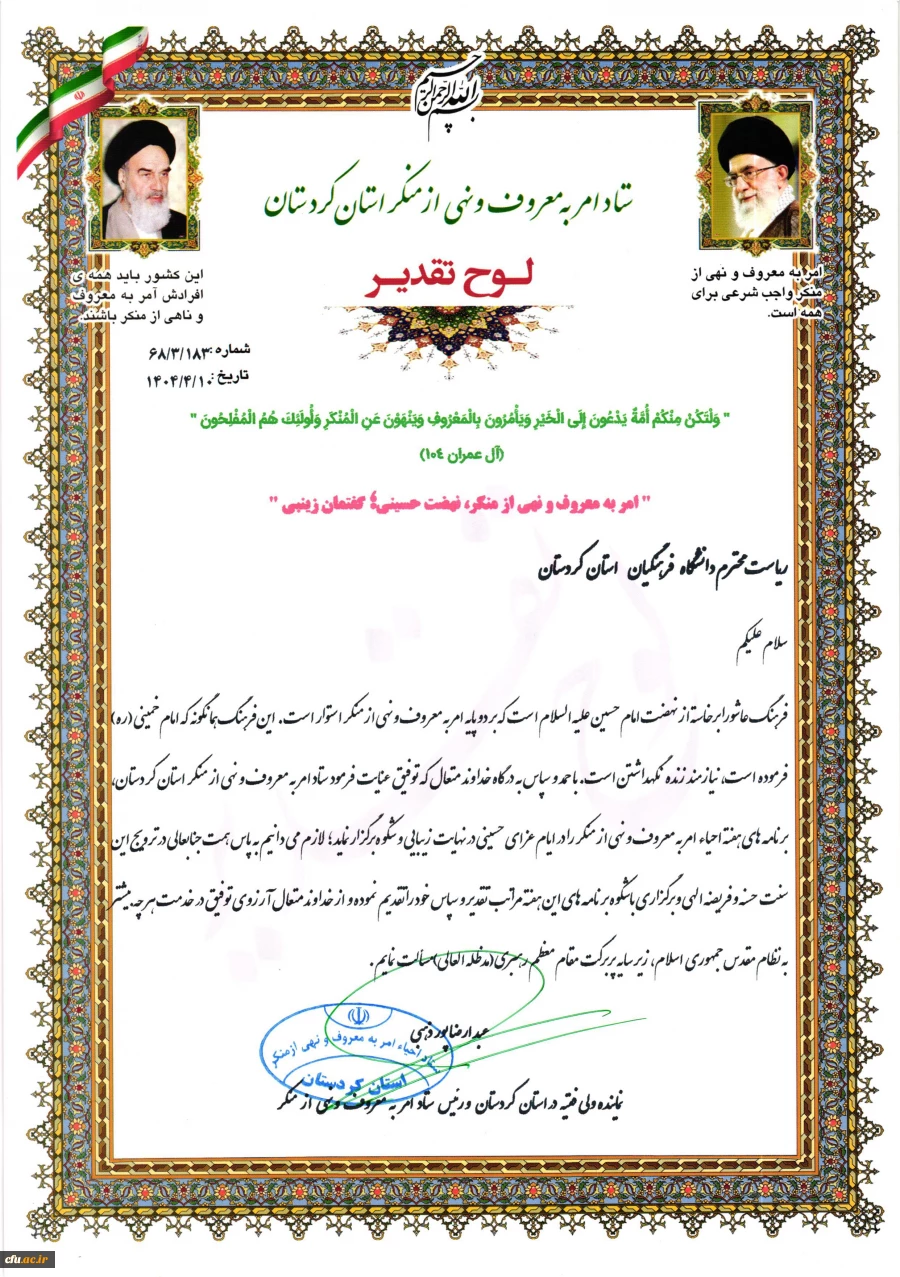 بسم الله الرحمن الرحیم
ستاد امر به معروف و نهی از منکر استان کردستان
لوح تقدیر
امر به معروف و نهی از
منکر واجب شرعی برای
همه است.
این کشور باید همه ی
افرادش آمر به معروف
و ناهی از منکر باشند.
شماره: ۶۸/۳/۱۸۳
تاریخ: ۱۴۰۴/۴/۱۰
" وَلْتَكُنْ مِنْكُمْ أُمَّةٌ يَدْعُونَ إِلَى الْخَيْرِ وَيَأْمُرُونَ بِالْمَعْرُوفِ وَيَنْهَوْنَ عَنِ الْمُنْكَرِ وَأُولَئِكَ هُمُ الْمُفْلِحُونَ "
(آل عمران ١٠٤)
" امر به معروف و نهی از منکر، نهضت حسینی؛ گفتمان زینبی "
ریاست محترم دانشگاه فرهنگیان استان کردستان
سلام علیکم
فرهنگ عاشورا برخاسته از نهضت امام حسین علیه السلام است که بر دو پایه امر به معروف و نهی از منکر استوار است. این فرهنگ همانگونه که امام خمینی (ره)
فرموده است، نیازمند زنده نگهداشتن است. با حمد و سپاس به درگاه خداوند متعال که توفیق عنایت فرمود ستاد امر به معروف و نهی از منکر استان کردستان،
برنامه های هفته احیاء امر به معروف و نهی از منکر را در ایام عزای حسینی در نهایت زیبایی و شکوه برگزار نماید؛ لازم می دانیم به پاس همت جنابعالی در ترویج این
سنت حسنه و فریضه الهی و برگزاری باشکوه برنامه های این هفته مراتب تقدیر و سپاس خود را تقدیم نموده و از خداوند متعال آرزوی توفیق در خدمت هرچه بیشتر
به نظام مقدس جمهوری اسلام، زیر سایه پربرکت مقام معظم رهبری (مدظله العالی) مسألت نمایم.
عبدارضا پورذهبی
ستاد احیاء امر به معروف و نهی از منکر
استان کردستان
نماینده ولی فقیه در استان کردستان و رئیس ستاد امر به معروف و نهی از منکر
cfu.ac.ir